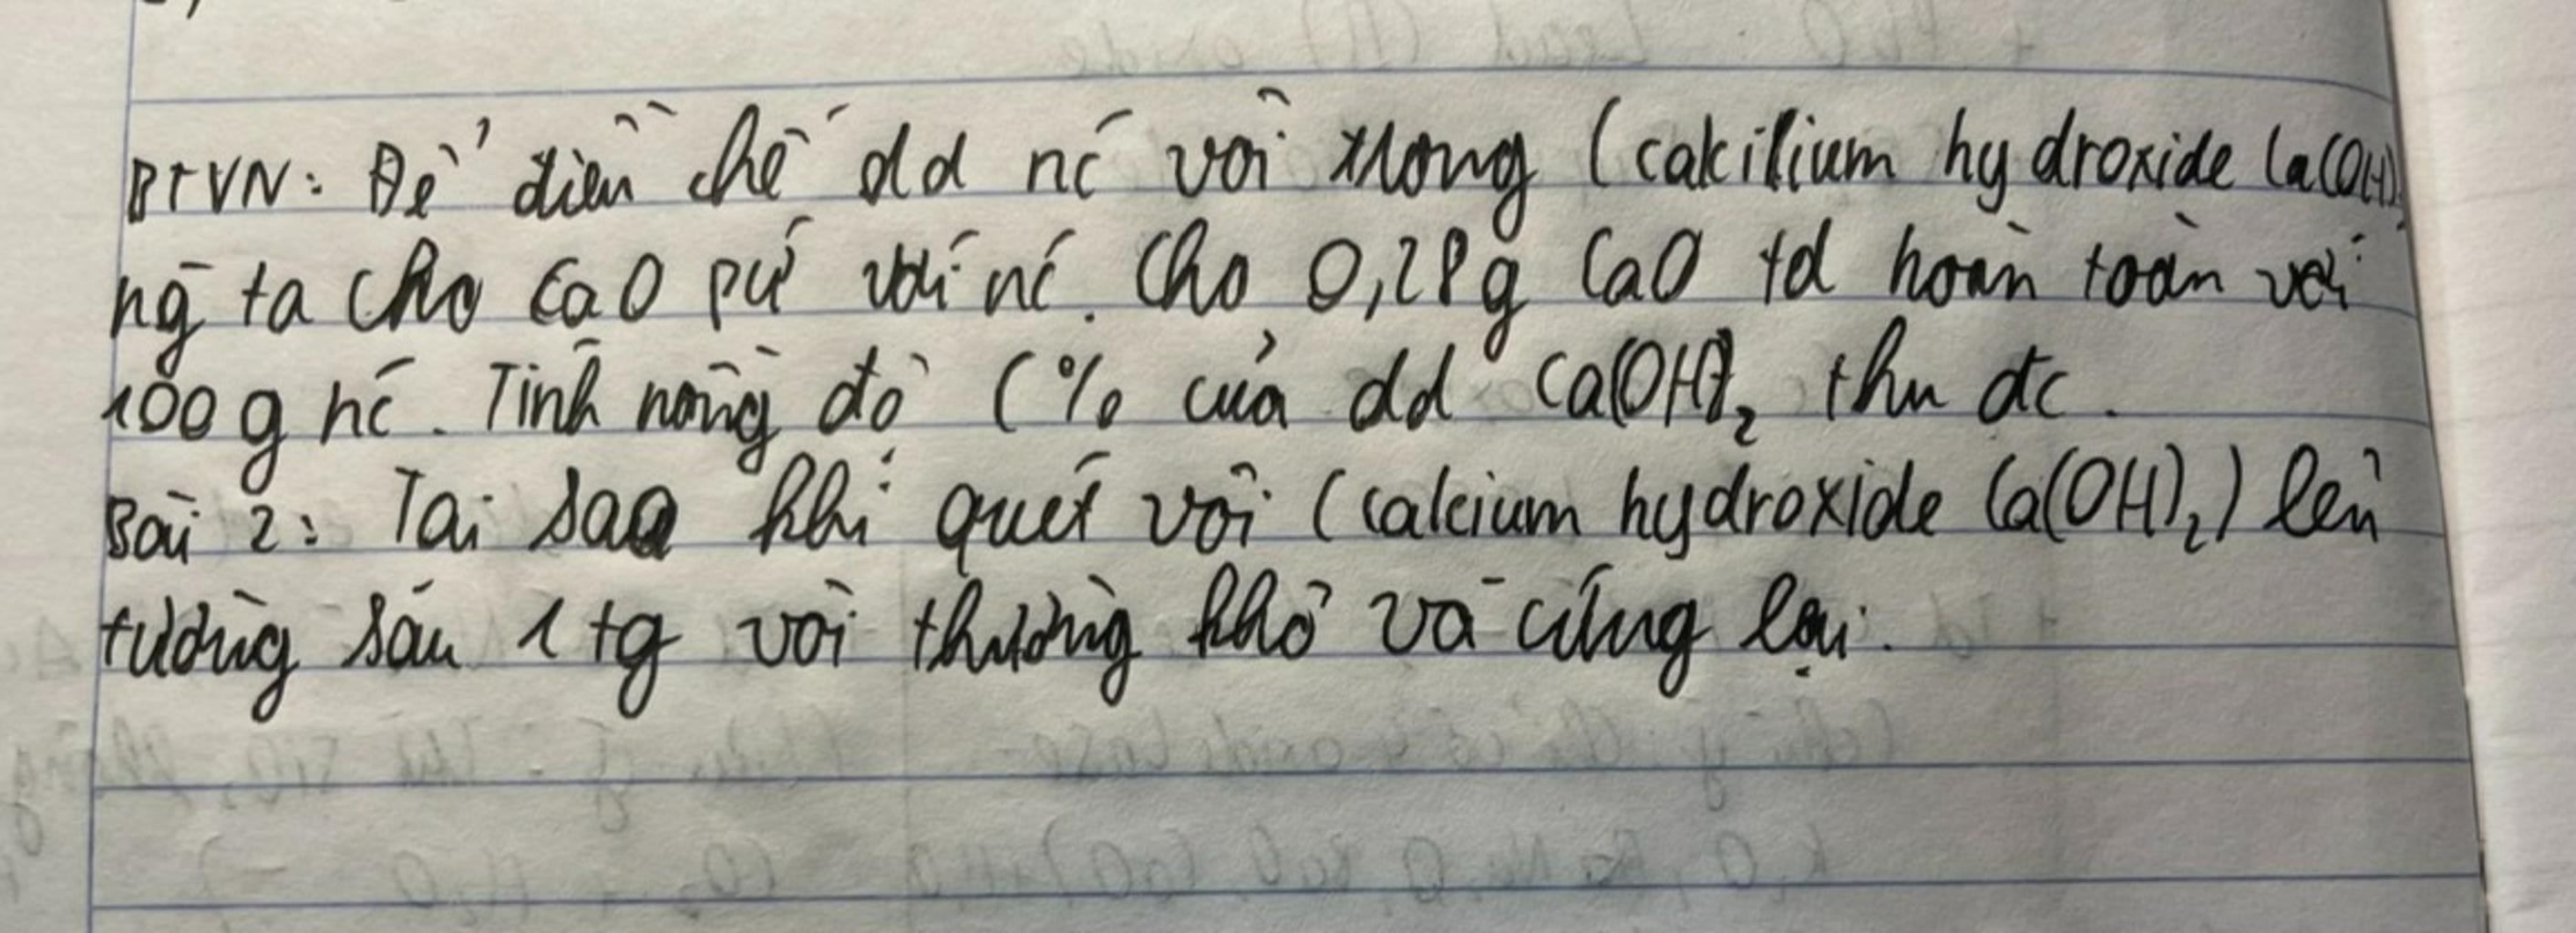 BTVN: Để điều chế dd nc vôi trong (cakcilium hydroxide Ca(OH)2
ng ta cho CaO pứ với nc. Cho 0,28g CaO td hoàn toàn với
100g nc. Tính nồng độ C% của dd Ca(OH)2 thu đc.
Bài 2: Tại sao khi quét vôi (calcium hydroxide Ca(OH)2) lên
tường sau 1 tg vôi thường khô và cứng lại.